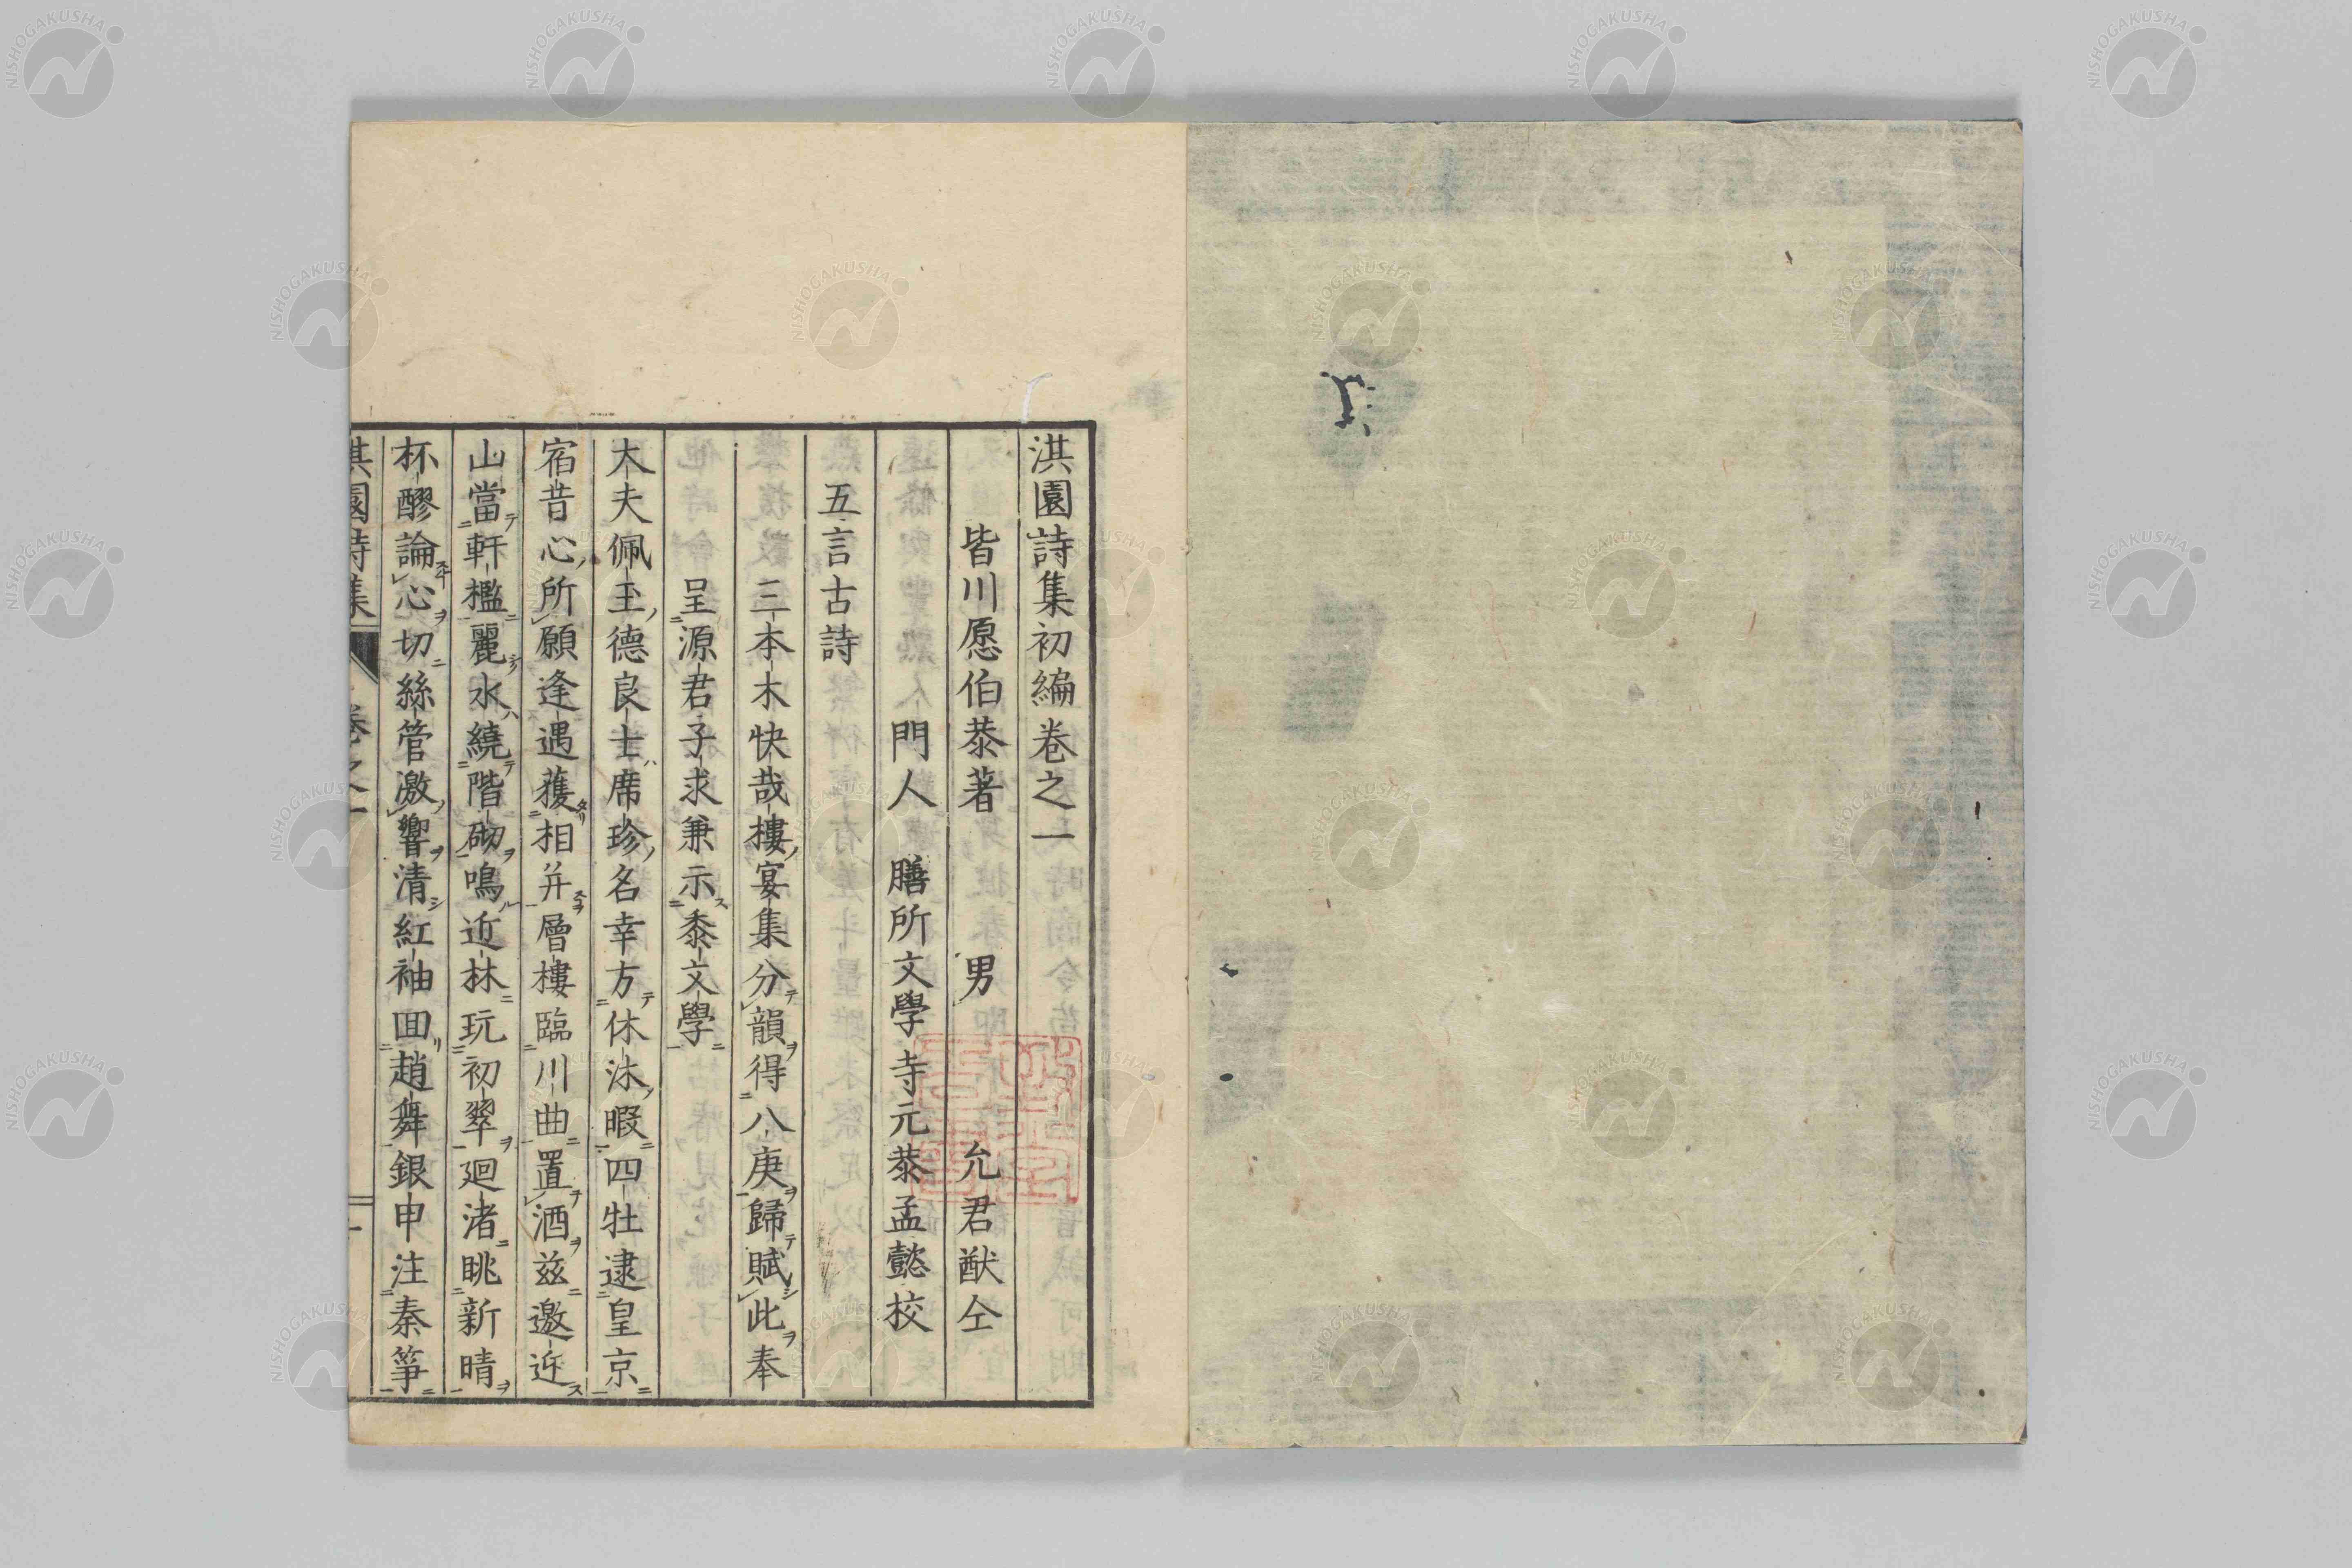 淇園詩集初編卷之一
皆川愿伯恭著　男　允君猷仝
門人　膳所文學寺元恭孟懿校
五言古詩
三本木快哉樓宴集分韻得八庚歸賦此奉
呈源君子求兼示黍文學
大夫佩玉德良士席珍名幸方休沐暇四牡逮皇京
宿昔心所願逢遇獲相并層樓臨川曲置酒茲邀迎
山當軒檻麗水繞階砌鳴近林玩初翠廻渚眺新晴
杯醪論心切絲管激響清紅袖回趙舞銀甲注秦箏
淇園詩集　卷之一　一
NISHOGAKUSHA